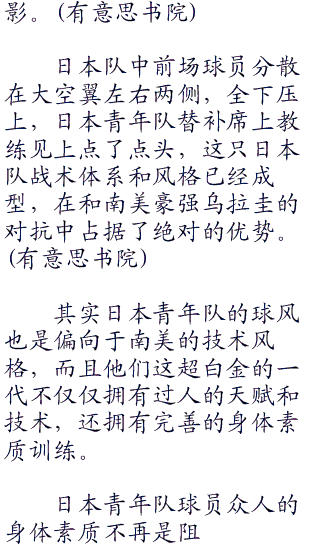 影。(有意思书院)
日本队中前场球员分散
在大空翼左右两侧，全下压
上，日本青年队替补席上教
练见上点了点头，这只日本
队战术体系和风格已经成
型，在和南美豪强乌拉圭的
对抗中占据了绝对的优势。
(有意思书院)
其实日本青年队的球风
也是偏向于南美的技术风
格，而且他们这超白金的一
代不仅仅拥有过人的天赋和
技术，还拥有完善的身体素
质训练。
日本青年队球员众人的
身体素质不再是阻